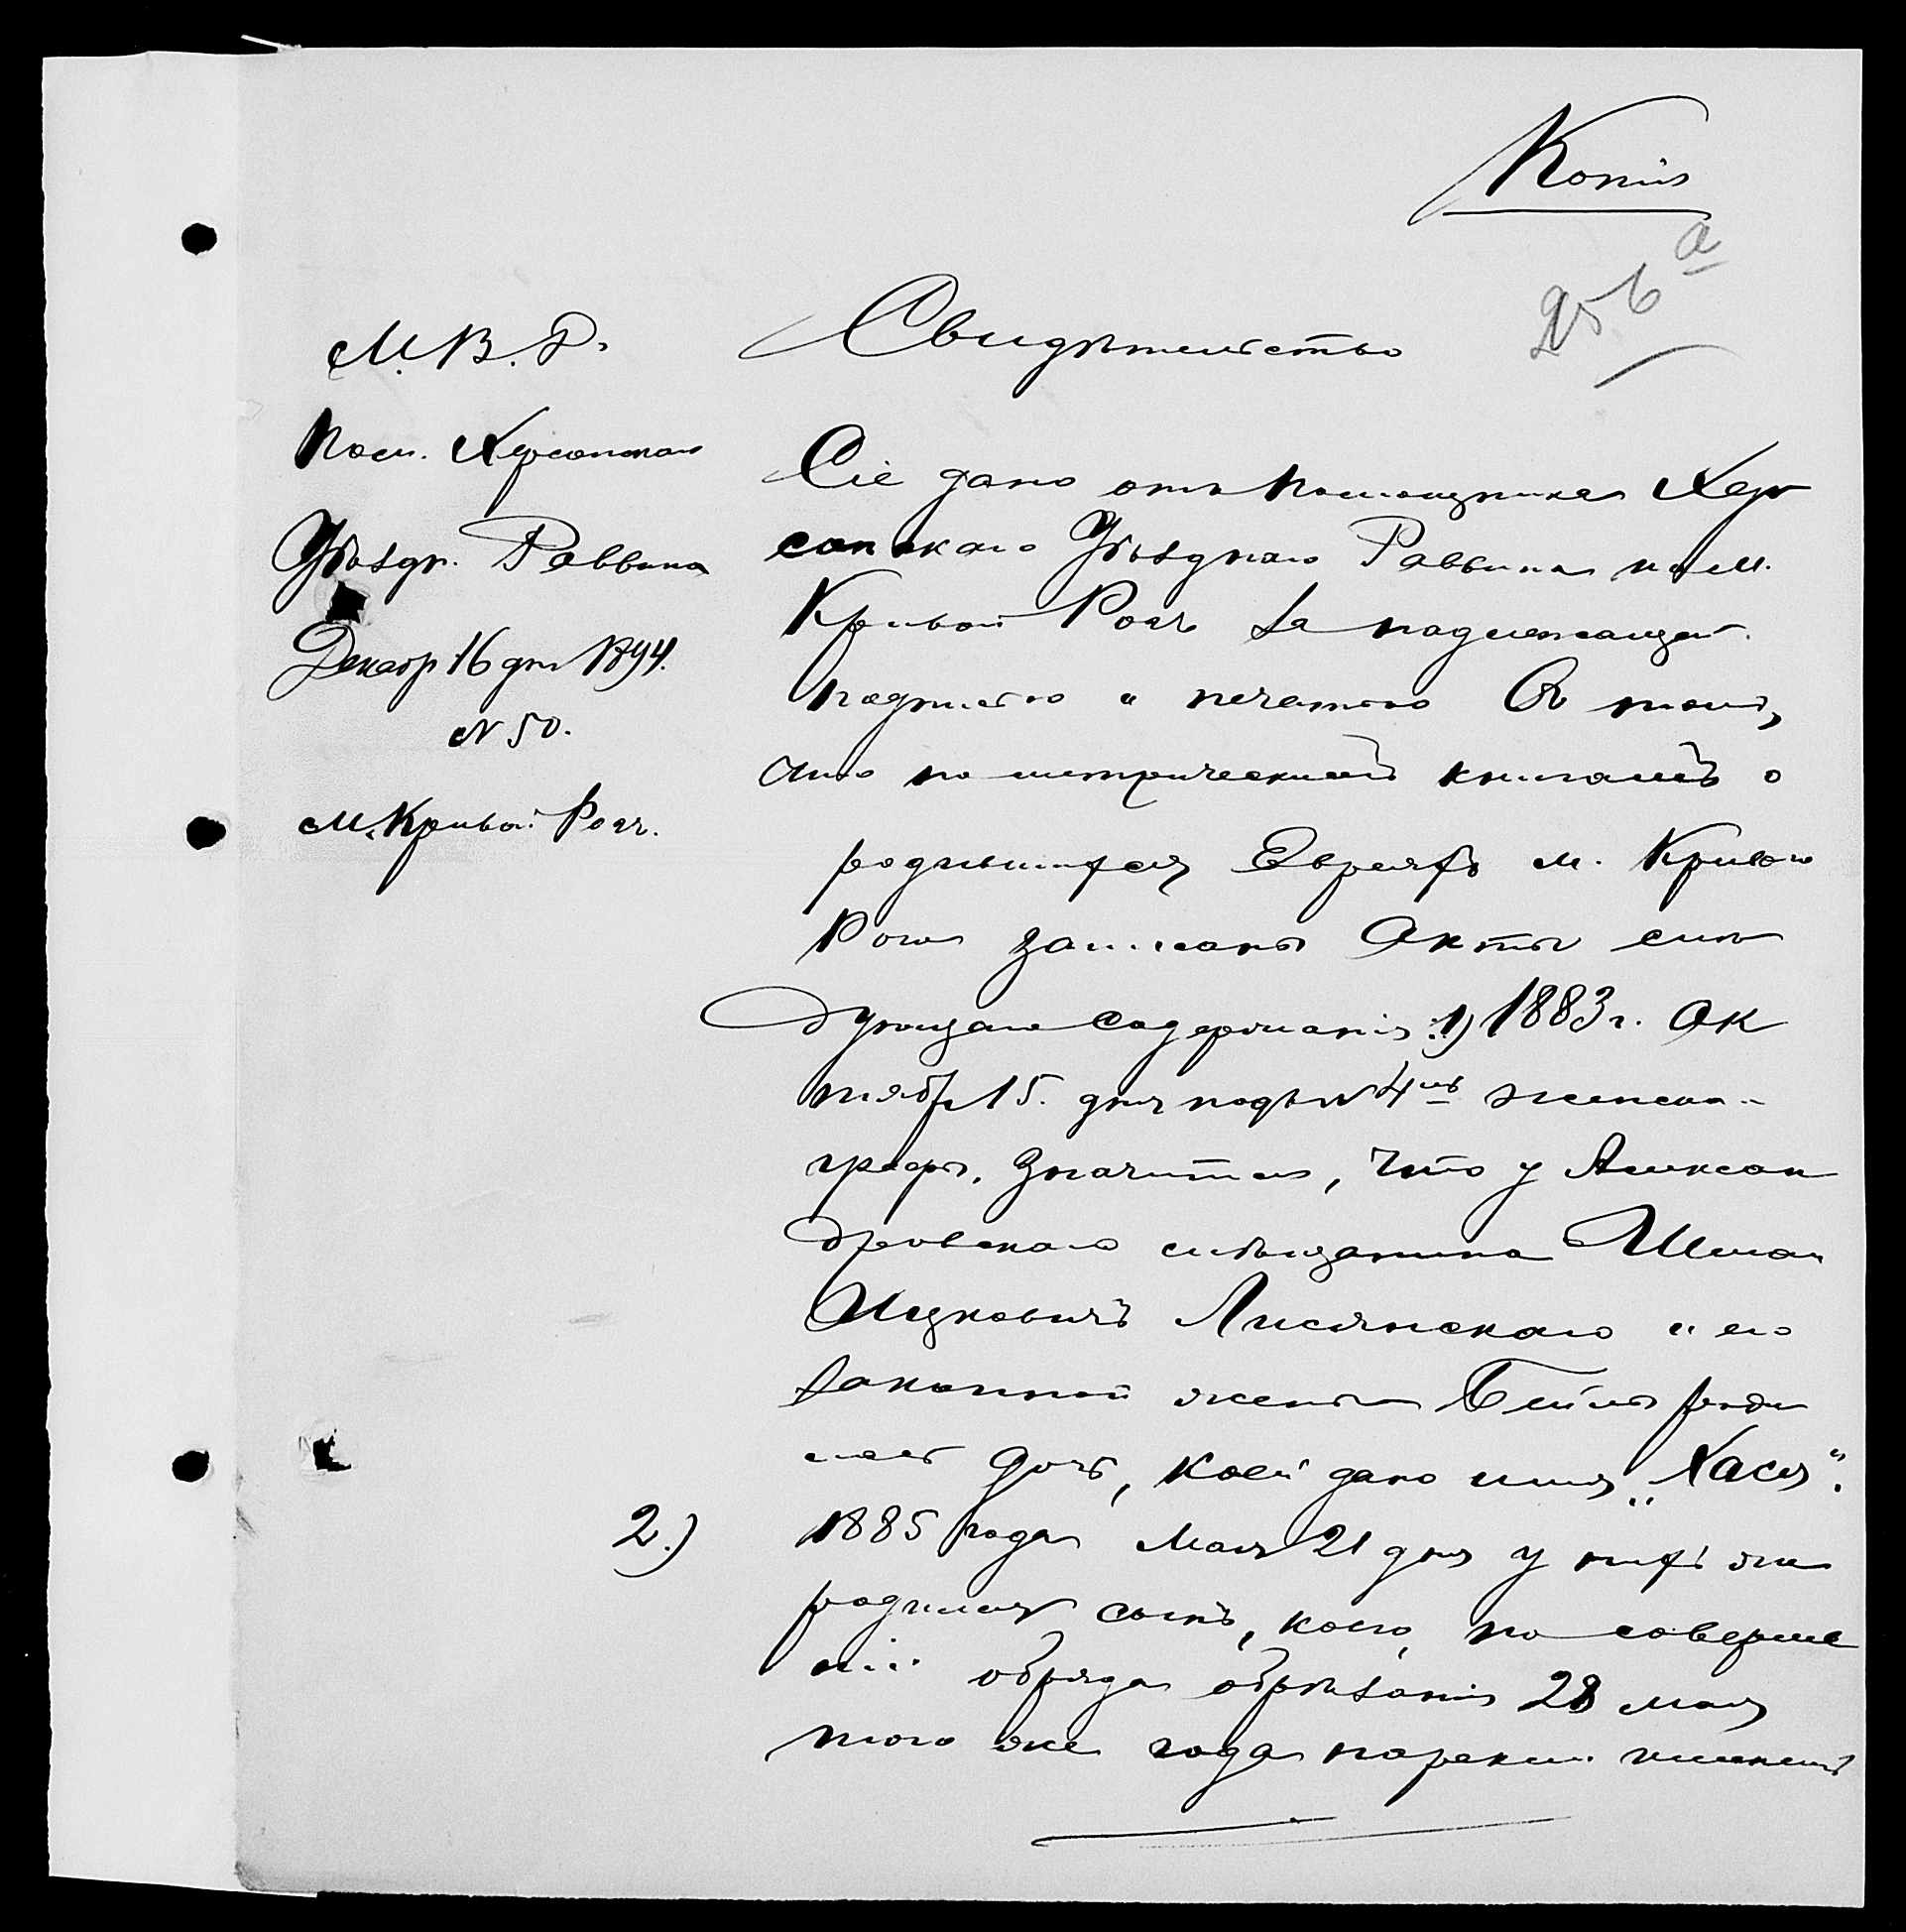 Копія
256 а
М. В. Д.
Пом. Херсонскаго
Уѣздн. Раввина
Декабр 16 дня 1894.
№ 50.
м. Кривой Рогъ.
Свидѣтельство
Сіе дано отъ Помощника Хер
сонскаго Уѣзднаго Раввина по м.
Кривой Рогъ за надлежащей
подписью и печатью въ томъ,
что по метрическимъ книгамъ о
родившихся Евреяхъ м. Кривого
Рога записаны Акты слѣ
дующаго содержанія: 1) 1883 г. Ок
тябр 15. дня подъ № 4мъ женской
графы, значится, что у Алексан
дровскаго мѣщанина
Ицковичъ Лисянскаго и его
законной жены Бейлы роди
лась дочь, коей дано имя „Хася".
2.) 1885 года Мая 21 дня у нихъ же
родился сынъ, коего, по соверше
ніи обряда обрѣзанія 28 мая
того же года нарекли именемъ